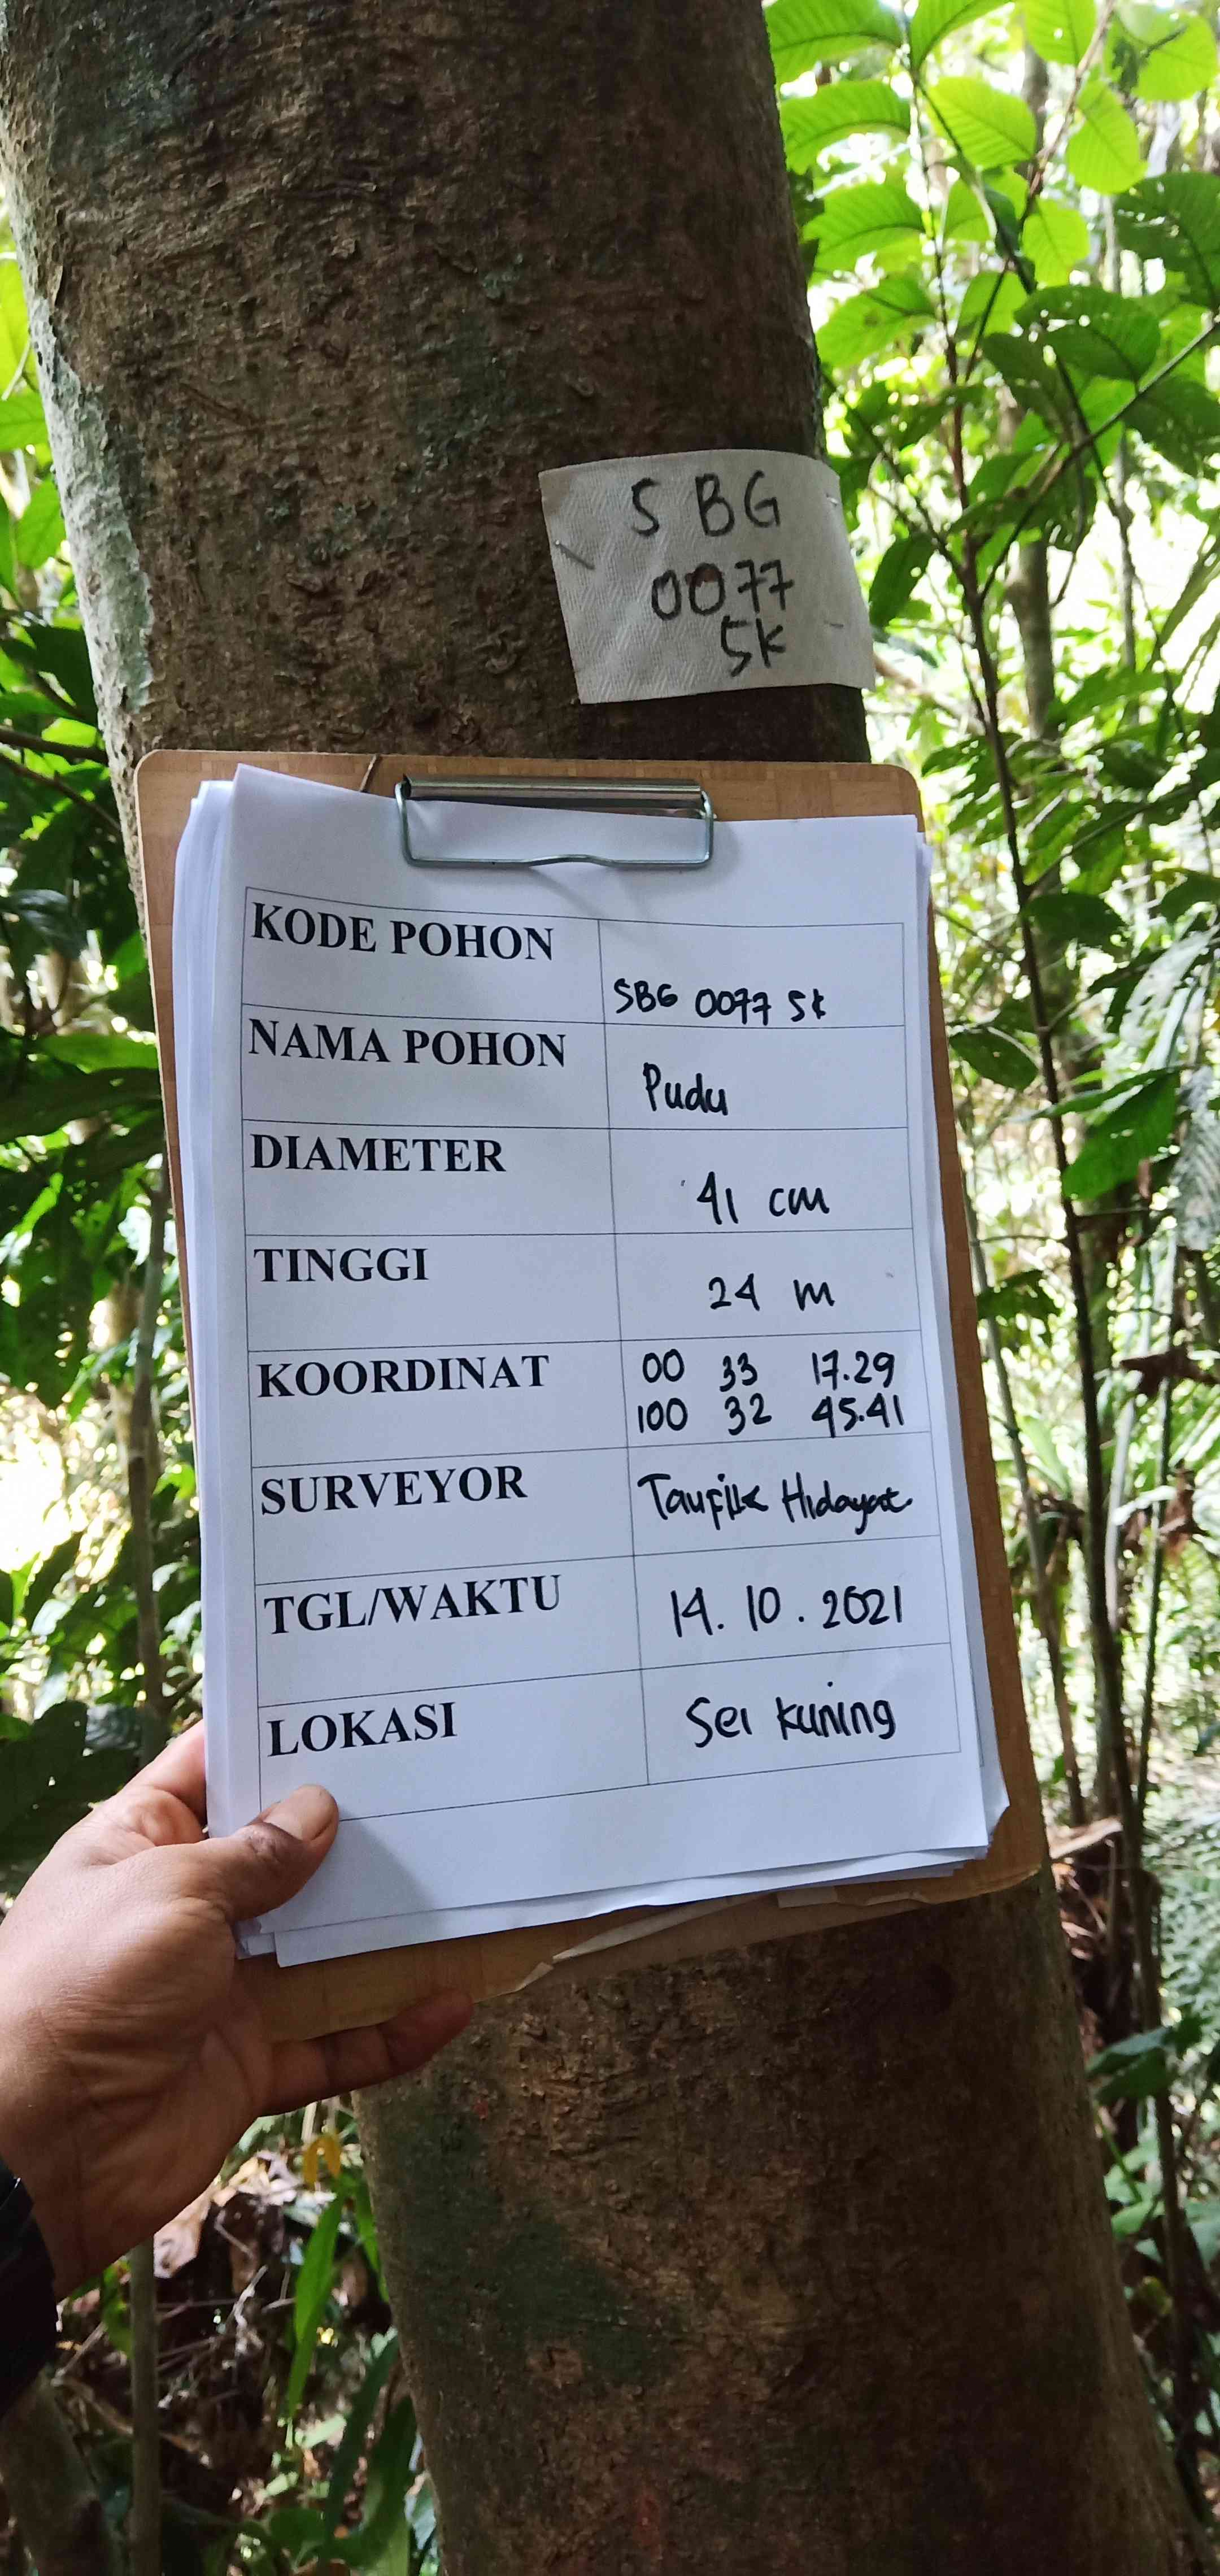 S BG
0077
SK
KODE POHON
SBG 0077 SK
NAMA POHON
Pudu
DIAMETER
41 cm
TINGGI
24 m
KOORDINAT
00 33 17.29
100 32 45.41
SURVEYOR
Taufik Hidayat
TGL/WAKTU
14.10.2021
LOKASI
Sei Kuning